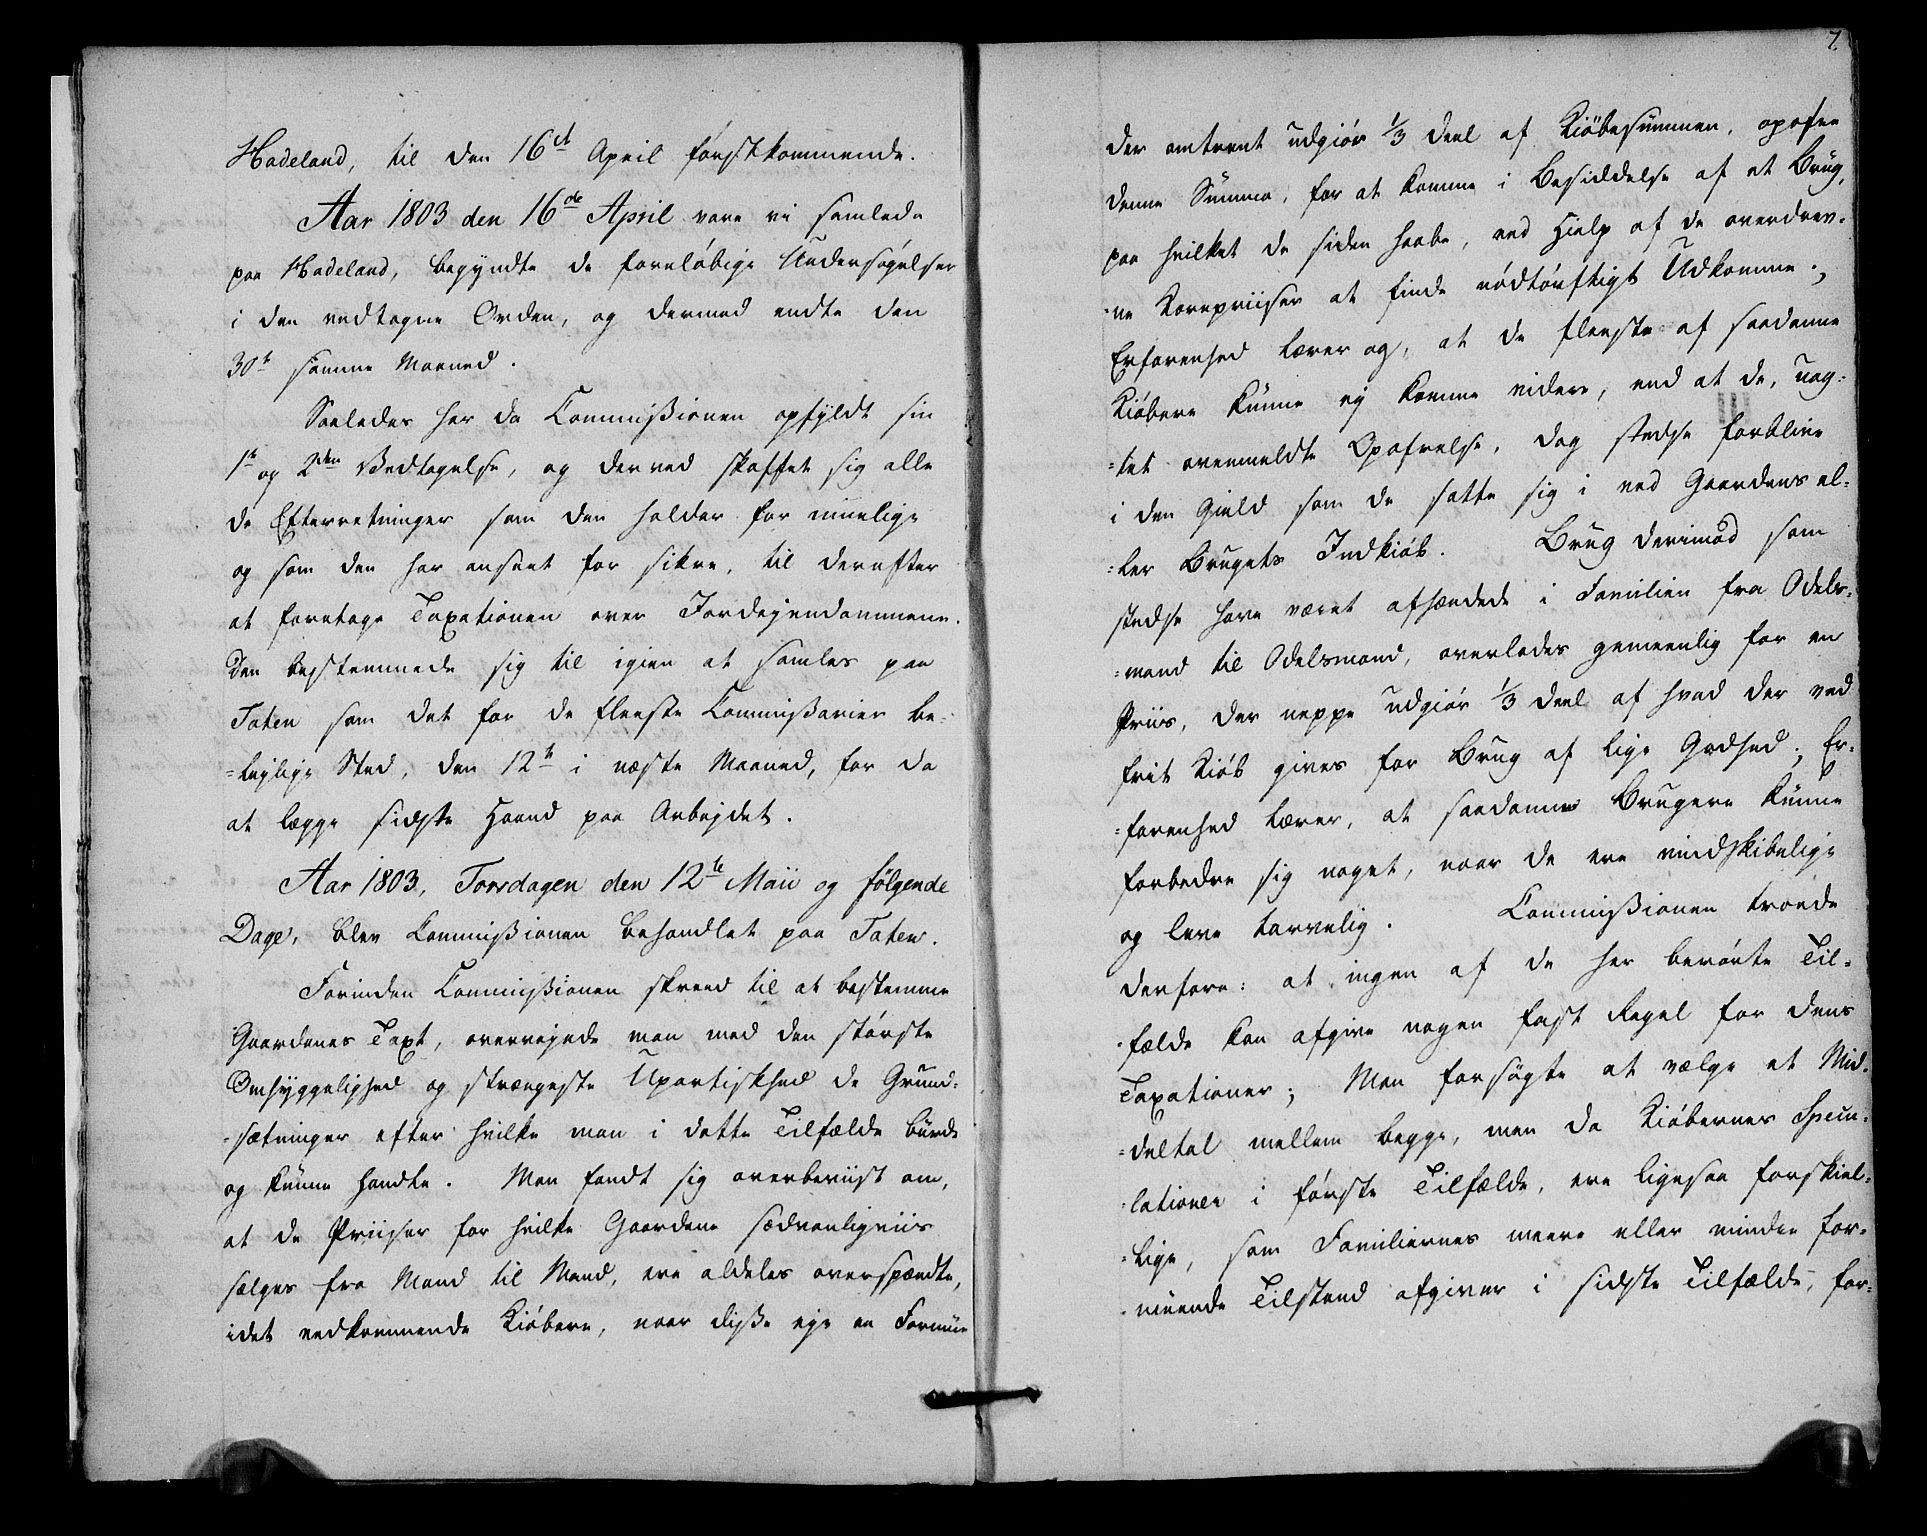 Hadeland, til den 16de April førstkommende.
Aar 1803 den 16de April vare vi samlede
paa Hadeland, begyndte de foreløbige Undersøgelser
i den vedtagne Orden, og dermed endte den
30te samme Maaned.
Saaledes har da Commißionen opfyldt sin
1te og 2den Vedtagelse, og derved skaffet sig alle
de Efterretninger som den holder for muelige
og som den har anseet for sikre, til derefter
at foretage Taxationen over Jordejendommene.
Den bestemmede sig til igien at samles paa
Toten som det for de fleeste Commißarier be-
=lejlige Sted, den 12te i næste Maaned, for da
at lægge sidste Haand paa Arbejdet.
Aar 1803, Torsdagen den 12te Maii og følgende
Dage, blev Commißionen behandlet paa Toten.
Forinden Commißionen skreed til at bestemme
Gaardenes Taxt, overvejede man med den største
Omhyggelighed og strængeste Upartiskhed de Grund-
-sætninger efter hvilke man i dette Tilfælde burde
og kunne handle. Man fandt sig overbeviist om,
at de Priiser for hvilke Gaardene sædvanligviis
sælges fra Mand til Mand, ere aldeles overspændte,
idet vedkommende Kiøbere, naar diße eje en Formue
7.
der omtrent udgiør 1/3 Deel af Kiøbesummen, opofre
denne Summa, for at komme i Besiddelse af et Brug,
paa hvilket de siden haabe, ved Hielp af de overdrev-
-ne Kornpriiser at finde nødtørftigt Udkomme;
Erfarenhed lærer og, at de fleeste af saadanne
Kiøbere kunne ej komme videre, end at de, uag-
=tet ovenmeldte Opofrelse, dog stedse forblive
i den Gield som de satte sig i ved Gaardens el-
=ler Brugets Indkiøb. Brug derimod som
stedse have været afhændede i Familien fra Odels-
=mand til Odelsmand, overlades gemeenlig for en
Priis, der neppe udgiør 1/3 Deel af hvad der ved
frit Kiøb gives for Brug af lige Godhed; Er-
=farenhed lærer, at saadanne Brugere kunne
forbedre sig noget, naar de ere vindskibelige
og leve tarvelig. Commißionen troede
derfore: at ingen af de her berørte Til-
-fælde kan afgive nogen fast Regel for dens
Taxationer; Man forsøgte at vælge et Mid-
=deltal mellem begge, men da Kiøbernes Specu-
-lationer i første Tilfælde, ere ligesaa forskiel-
=lige, som Familiernes meere eller mindre for-
-muende Tilstand afgiver i sidste Tilfælde, for-